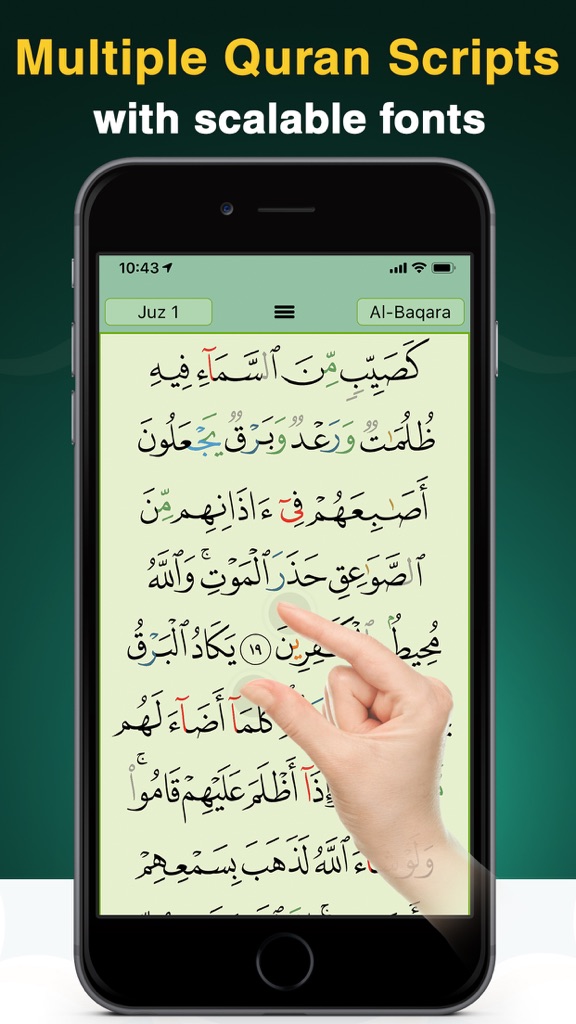 Multiple Quran Scripts
with scalable fonts
10:43
Juz 1
Al-Baqara
كَصَيِّبٍ مِّنَ ٱلسَّمَآءِ فِيهِ
ظُلُمَٰتٌ وَرَعْدٌ وَبَرْقٌ يَجْعَلُونَ
أَصَٰبِعَهُمْ فِىٓ ءَاذَانِهِم مِّنَ
ٱلصَّوَٰعِقِ حَذَرَ ٱلْمَوْتِ ۚ وَٱللَّهُ
مُحِيطٌۢ ١٩ يَكَادُ ٱلْبَرْقُ
كُلَّمَآ أَضَآءَ لَهُم
إِذَآ أَظْلَمَ عَلَيْهِمْ قَامُوا۟ ۚ
وَلَوْ ٱللَّهُ لَذَهَبَ بِسَمْعِهِمْ